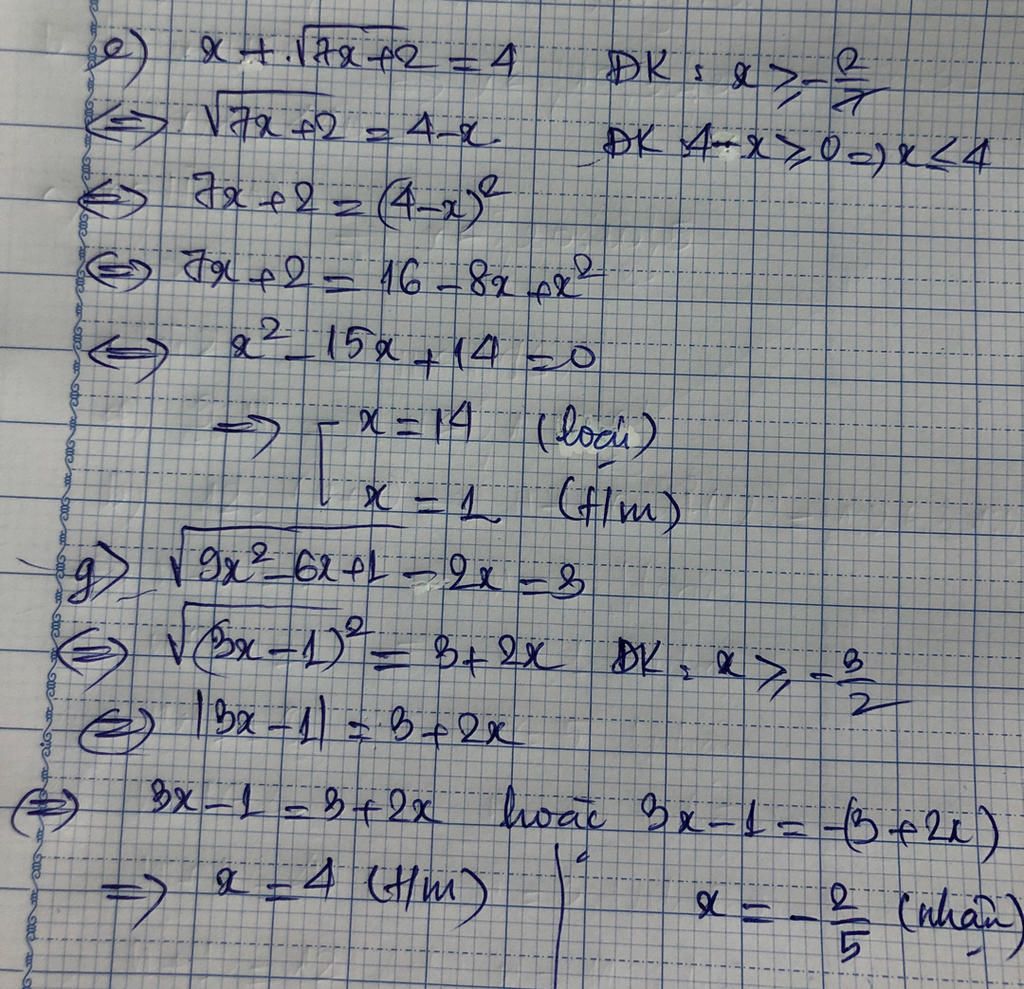 e) x + √(7x+2) = 4 ĐK: x ≥ -2/7
⇔ √(7x+2) = 4-x ĐK 4-x ≥ 0 ⇒ x ≤ 4
⇔ 7x+2 = (4-x)²
⇔ 7x+2 = 16 - 8x + x²
⇔ x² - 15x + 14 = 0
⇒ [ x = 14 (loại)
x = 1 (t/m)
g) √(9x²-6x+1) - 2x = 3
⇔ √((3x-1)²) = 3+2x ĐK: x ≥ -3/2
⇔ |3x-1| = 3+2x
⇔ 3x-1 = 3+2x hoặc 3x-1 = -(3+2x)
⇒ x = 4 (t/m) | x = -2/5 (nhận)